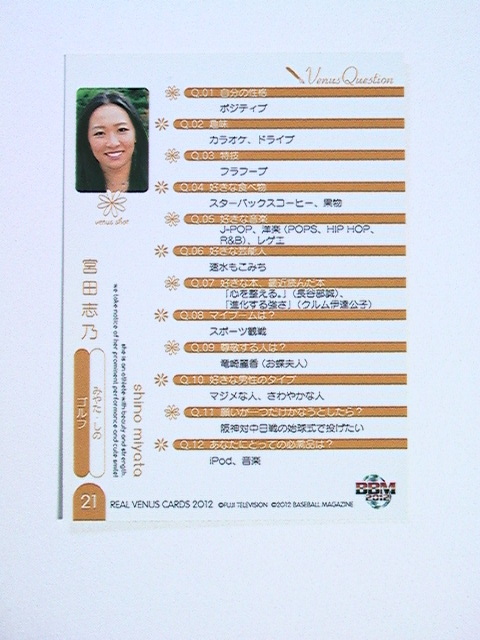 Venus Question
Q.01 自分の性格
ポジティブ
Q.02 趣味
カラオケ、ドライブ
Q.03 特技
フラフープ
Q.04 好きな食べ物
スターバックスコーヒー、果物
Q.05 好きな音楽
J-POP、洋楽（POPS、HIP HOP、
R&B）、レゲエ
Q.06 好きな芸能人
速水もこみち
Q.07 好きな本、最近読んだ本
「心を整える。」（長谷部誠）、
「進化する強さ」（クルム伊達公子）
Q.08 マイブームは？
スポーツ観戦
Q.09 尊敬する人は？
竜崎麗香（お蝶夫人）
Q.10 好きな男性のタイプ
マジメな人、さわやかな人
Q.11 願いが一つだけかなうとしたら？
阪神対中日戦の始球式で投げたい
Q.12 あなたにとっての必需品は？
iPod、音楽
venus shot
宮田志乃
みやた しの
ゴルフ
shino miyata
she is an athlete with beauty and strength.
we take notice of her prominent performance and cute smile!
21
REAL VENUS CARDS 2012 ©FUJI TELEVISION ©2012 BASEBALL MAGAZINE
BBM
2012